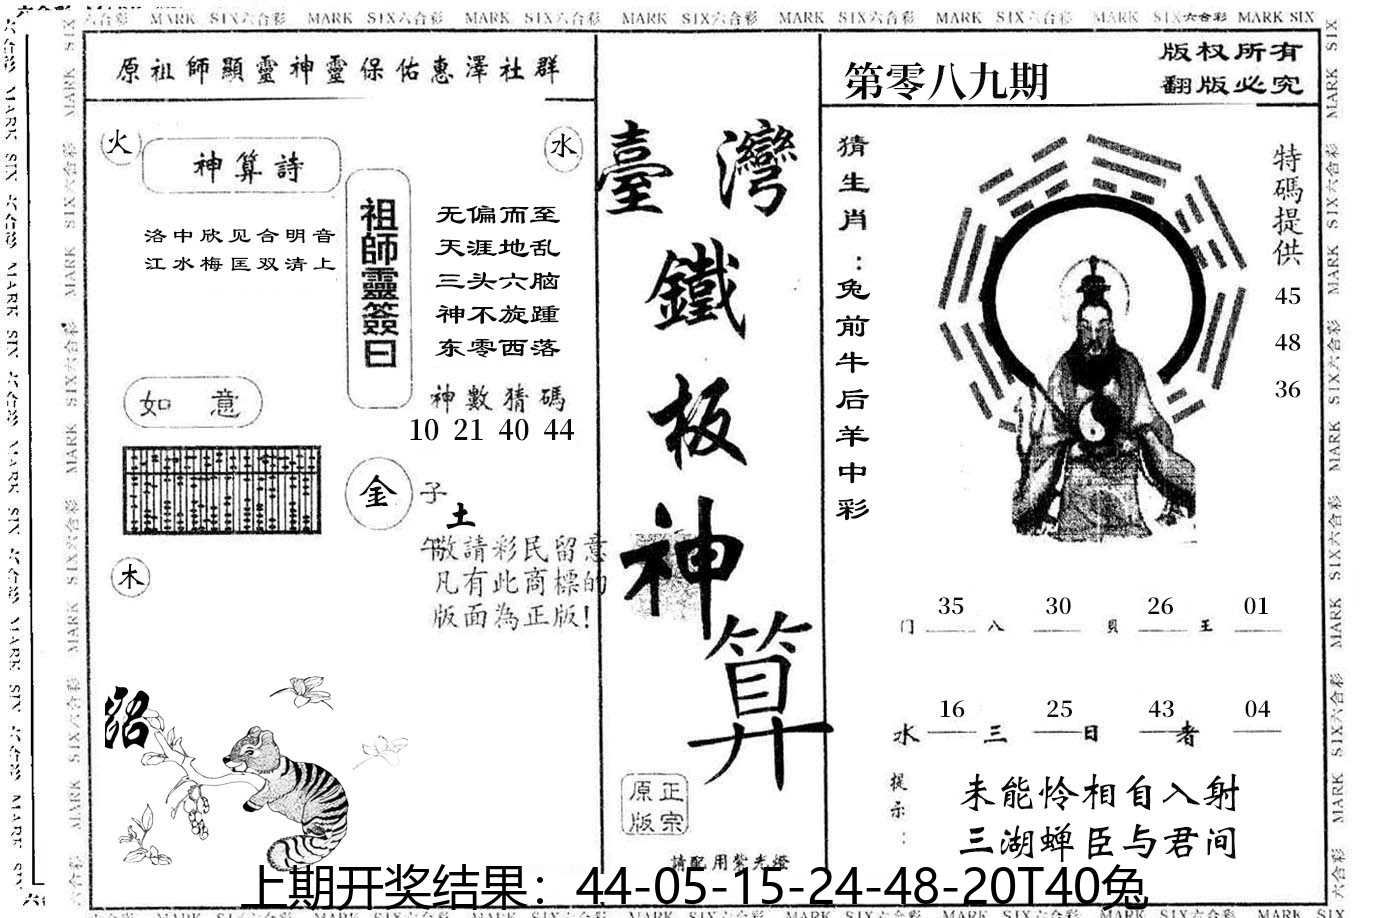 原祖師顯靈神靈保佑惠澤社群
火
神算詩
水
洛中欣见合明音
江水梅匡双清上
祖師靈簽曰
无偏而至
天涯地乱
三头六脑
神不旋踵
东零西落
如 意
神數猜碼
10 21 40 44
金
子
土
午
敬請彩民留意
凡有此商標的
版面為正版!
木
臺灣
鐵
板
神
算
正宗
原版
請配用紫光燈
第零八九期
版权所有
翻版必究
猜生肖:兔前牛后羊中彩
特碼提供
45
48
36
35 30 26 01
门 八 貝 王
16 25 43 04
水 三 日 者
提示:
未能怜相自入射
三湖蝉臣与君间
上期开奖结果：44-05-15-24-48-20T40兔
MARK SIX六合彩 MARK SIX六合彩 MARK SIX六合彩 MARK SIX六合彩 MARK SIX六合彩 MARK SIX六合彩 MARK SIX六合彩 MARK SIX